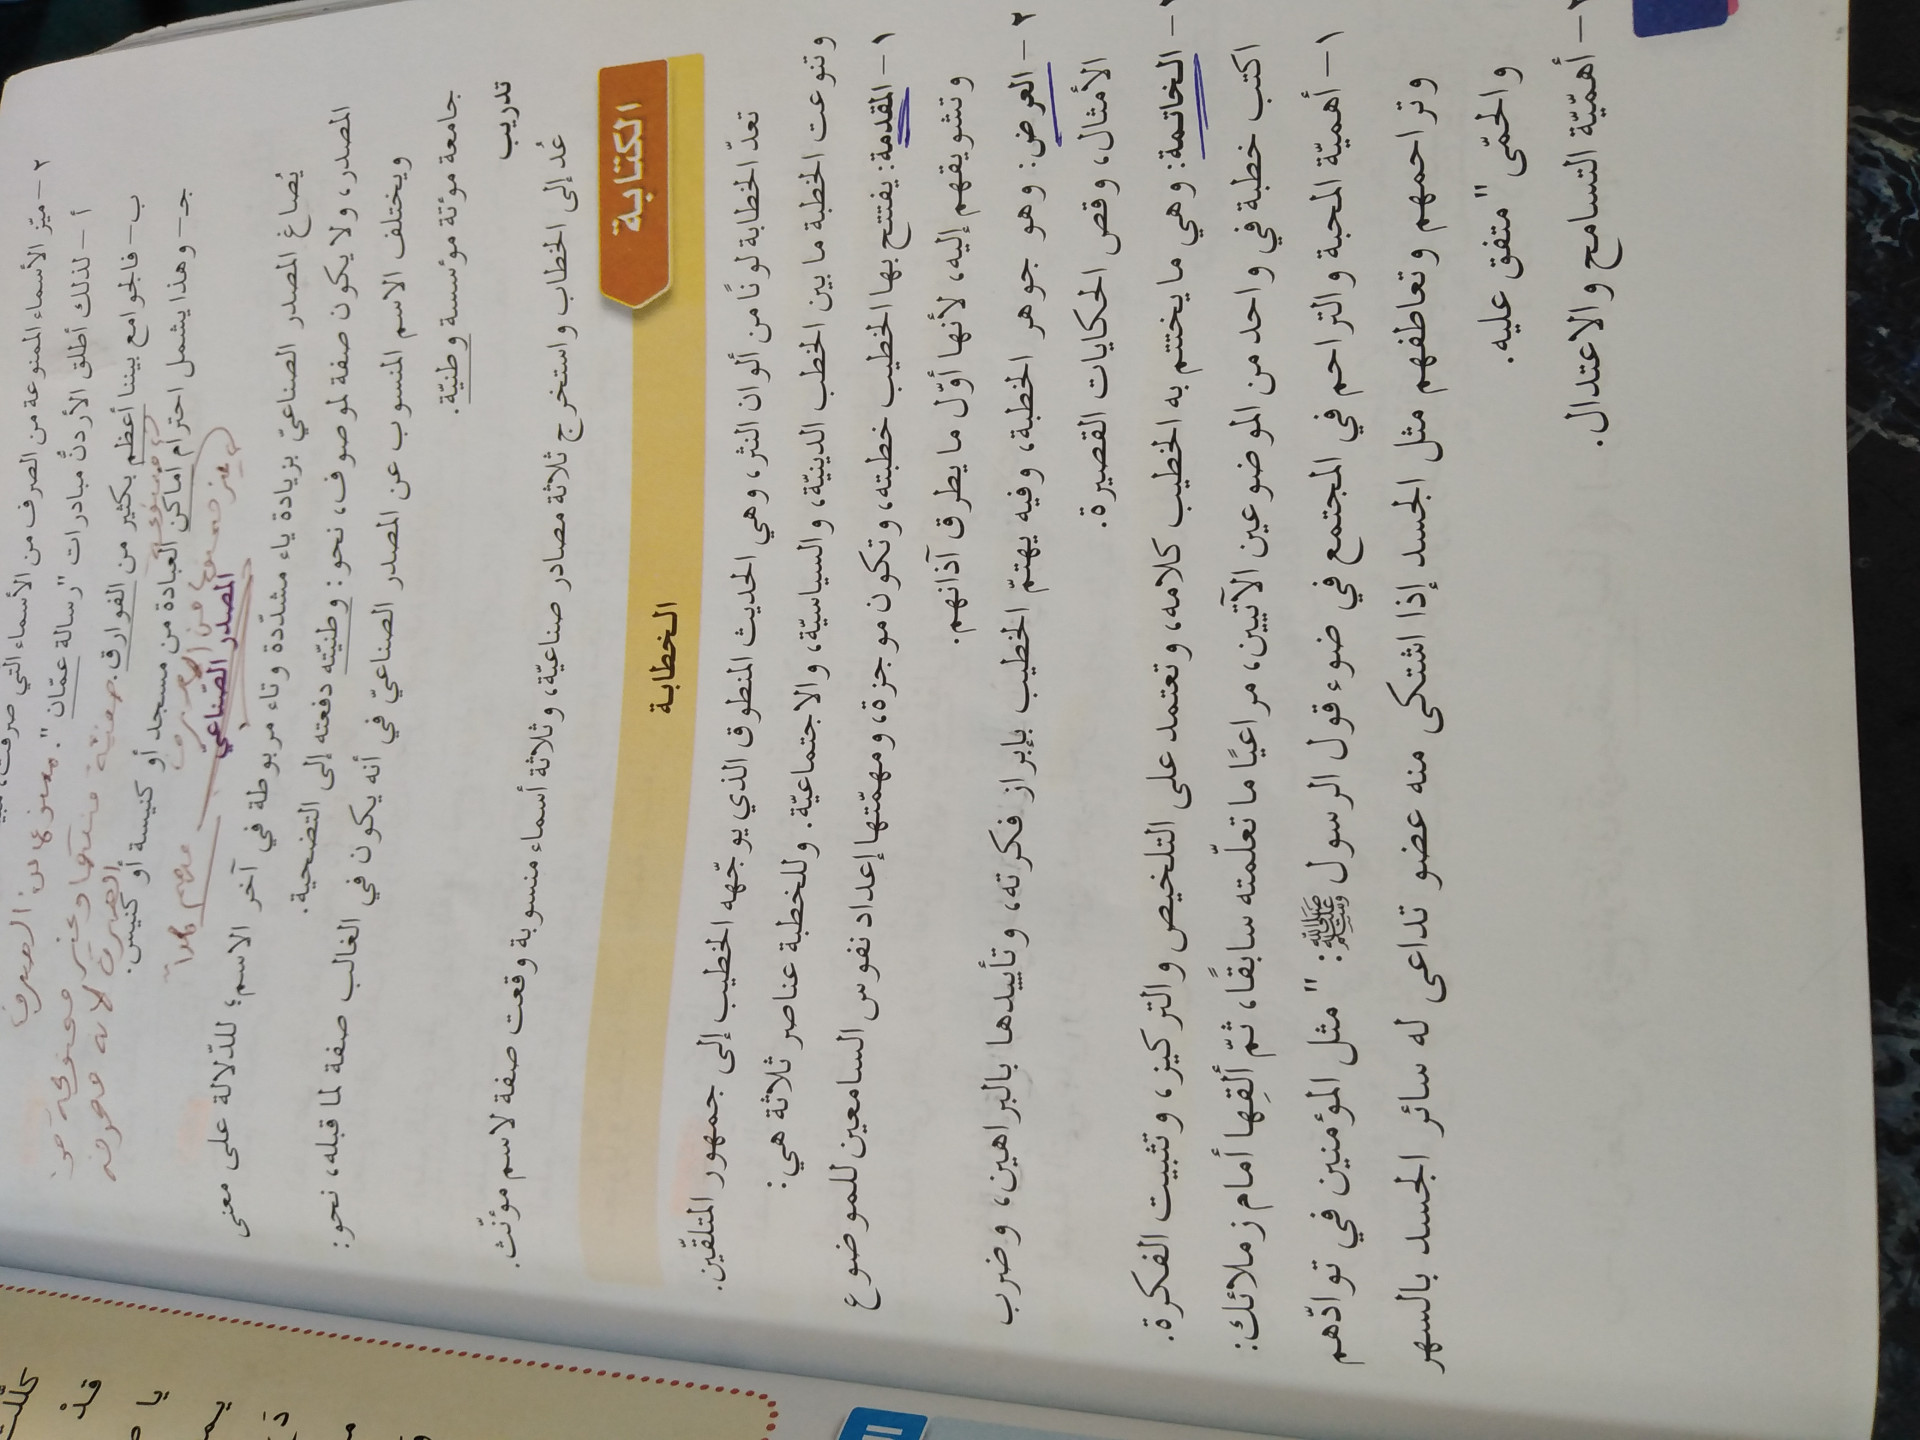 ٢- ميّز الأسماء الممنوعة من الصرف من الأسماء التي صرفت،
أ - لذلك أطلق الأردنُّ مبادرات "رسالة عمّان".
ب- فالجوامع بيننا أعظم بكثير من الفوارق.
جـ- وهذا يشمل احترام أماكن العبادة من مسجد أو كنيسة أو كنيس.
المصدر الصّناعي
يُصاغ المصدر الصناعيّ بزيادة ياء مشدّدة وتاء مربوطة في آخر الاسم؛ للدّلالة على معنى
المصدر، ولا يكون صفة لموصوف، نحو: وطنيّته دفعته إلى التضحية.
ويختلف الاسم المنسوب عن المصدر الصناعيّ في أنه يكون في الغالب صفة لما قبله، نحو:
جامعة مؤتة مؤسسة وطنيّة.
تدريب
عُد إلى الخطاب واستخرج ثلاثة مصادر صناعيّة، وثلاثة أسماء منسوبة وقعت صفة لاسم مؤنّث.
الكتابة
الخطابة
تعدّ الخطابة لونًا من ألوان النثر، وهي الحديث المنطوق الذي يوجّهه الخطيب إلى جمهور المتلقّين.
وتنوعت الخطبة ما بين الخطب الدينيّة، والسياسيّة، والاجتماعيّة. وللخطبة عناصر ثلاثة هي:
١- المقدمة: يفتتح بها الخطيب خطبته، وتكون موجزة، ومهمّتها إعداد نفوس السامعين للموضوع
وتشويقهم إليه، لأنها أوّل ما يطرق آذانهم.
٢- العرض: وهو جوهر الخطبة، وفيه يهتمّ الخطيب بإبراز فكرته، وتأييدها بالبراهين، وضرب
الأمثال، وقص الحكايات القصيرة.
- الخاتمة: وهي ما يختتم به الخطيب كلامه، وتعتمد على التلخيص والتركيز، وتثبيت الفكرة.
اكتب خطبة في واحد من الموضوعين الآتيين، مراعيًا ما تعلّمته سابقًا، ثمّ ألقِها أمام زملائك:
١- أهميّة المحبة والتراحم في المجتمع في ضوء قول الرسول ﷺ: "مثل المؤمنين في توادّهم
وتراحمهم وتعاطفهم مثل الجسد إذا اشتكى منه عضو تداعى له سائر الجسد بالسهر
والحمّى" متفق عليه.
٢- أهميّة التسامح والاعتدال.